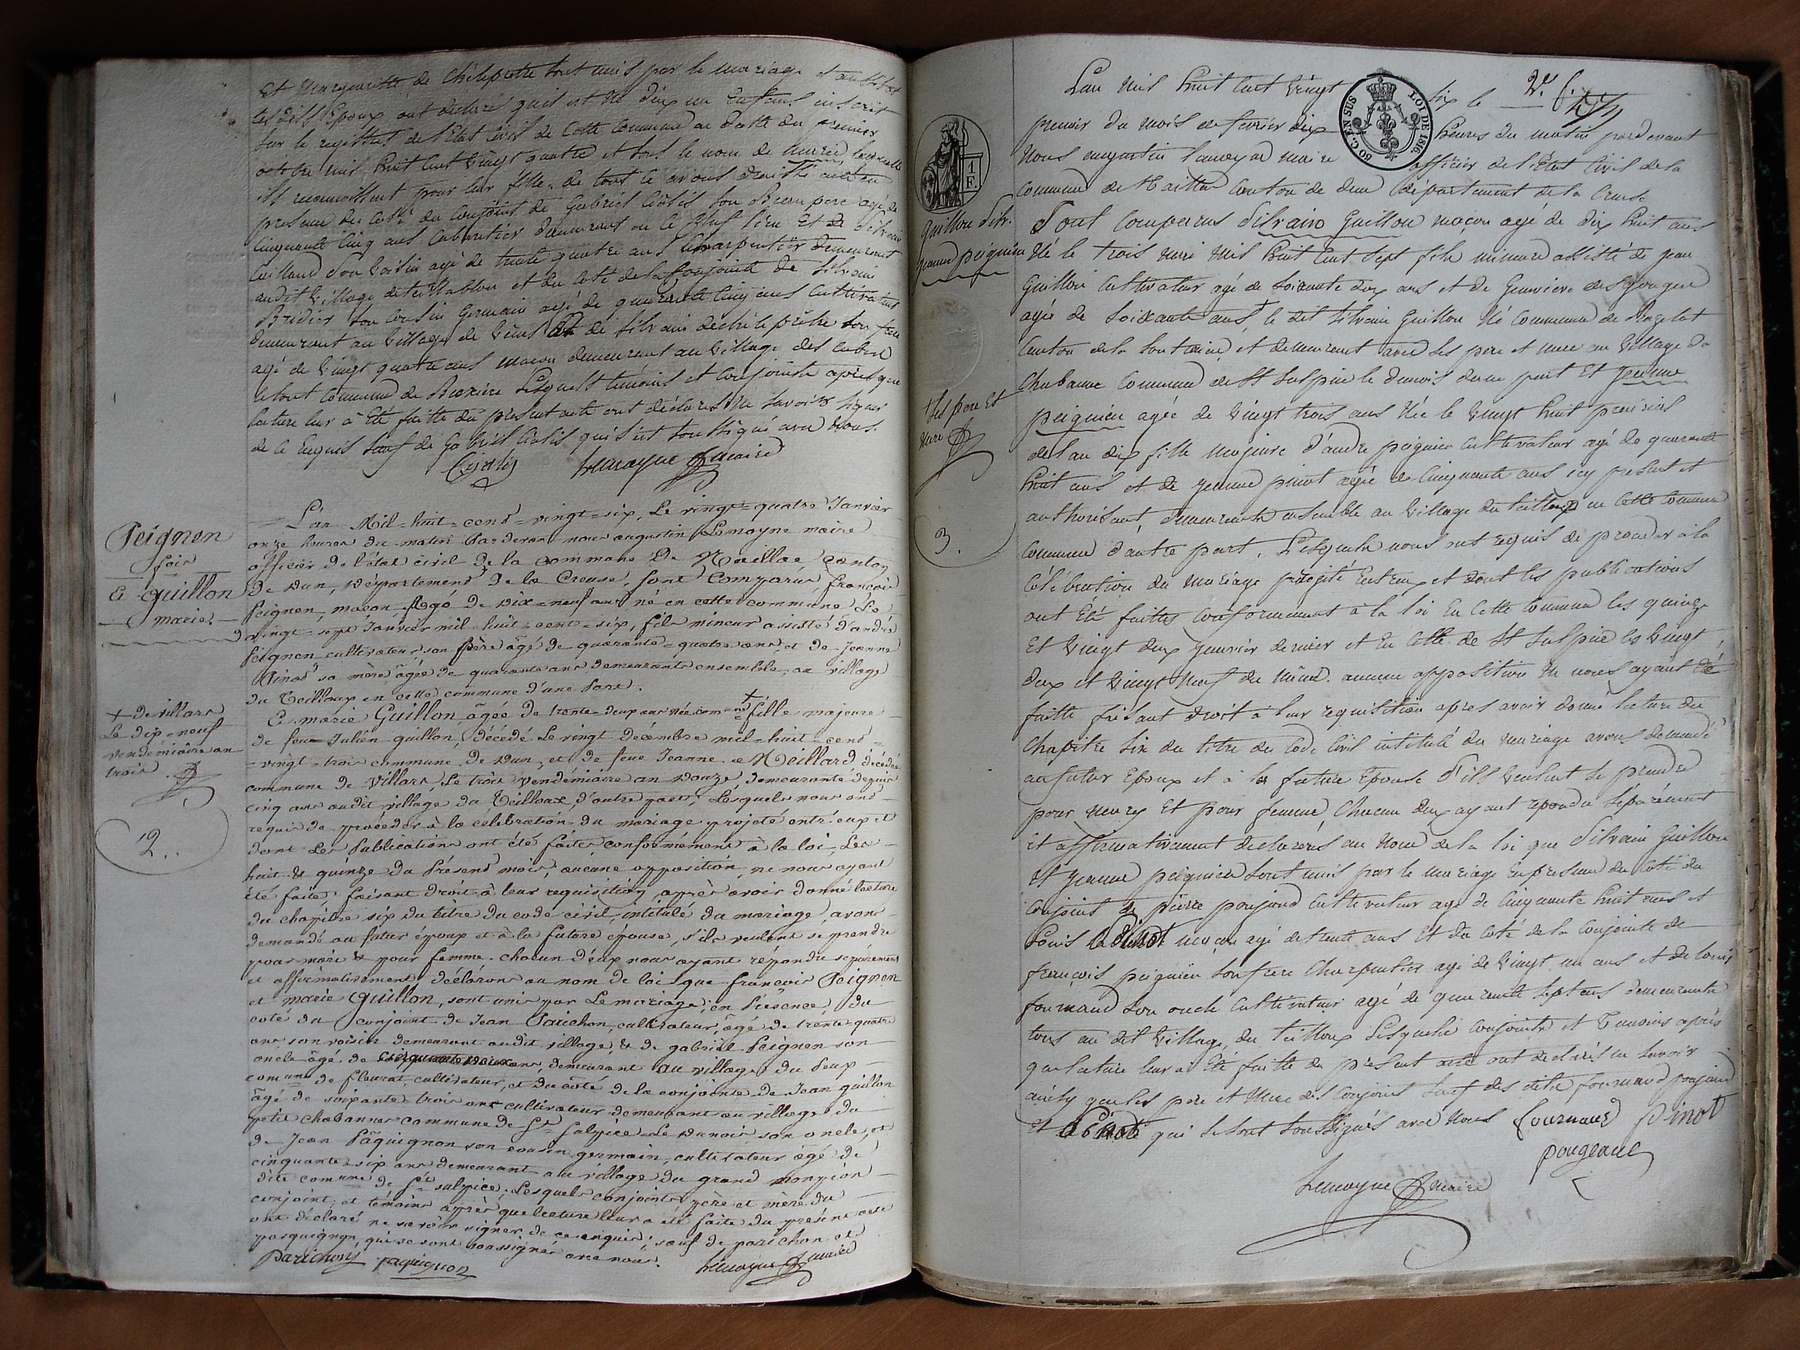 Et Margueritte de Chéleprètre sont unis par le mariage et aussitôt
les dits Epoux ont declaré qu'il est Né d'eux un Enfant inscrit
sur le registre de l'Etat Civil de Cette Commune au datte du premier
octobre mil huit cent Vingt quatre et sous le nom de
ils reconnoissent pour leur fille, de tout ce avons dressé acte en
presence du Coté du Conjoint de Gabriel son Beaupere agé de
Cinquante Cinq ans Cabaretier demeurant au Chef lieu Et de Silvain
son Voisin agé de trente quatre ans Charpentier demeurant
audit Village et du coté de la Conjointe de Silvain
Bridier son Cousin Germain agé de quarante Cinq ans Cultivateur
demeurant au Village de et de Silvain dechéleprètre son frere
agé de Vingt quatre ans macon demeurant au Village des
le tout Commune de Lesquels temoins et Conjoints après que
lecture leur à Eté faitte du présent acte ont déclarés Ne Savoir Signer
de ce Enquis Sauf de Gabriel qui s'est soussigné avec Nous.
Lemoyne maire
Peignen
fois
Et Guillon
marie
L'an Mil-huit-cent-vingt-six, Le vingt-quatre Janvier
onze heures du matin Pardevant nous augustin Lemoyne maire
officier de l'état civil de la commune De Naillac canton
de Dun, Département De la Creuse, Sont Comparus françois
Peignen, maçon Agé De Dix-neuf ans né en cette commune Le
vingt-sept Janvier mil-huit-cent-six, fils mineur assisté d'andré
Peignen cultivateur, son père âgé de quarante-quatre ans et de Jeanne
Pinot sa mère âgée de quarante ans, demeurants ensemble au village
du Teilloux en cette commune d'une Part.
Et marie Guillon âgée de trente-deux ans née com ne + fille majeure
de feu Julien guillon, décédé Le vingt décembre mil-huit-cent-
vingt-trois commune de Dun, et de feue Jeanne Meillard décédée
commune de Villars, Le trois vendémiaire an Douze, demeurante depuis
cinq ans audit village du Teilloux, d'autre part; Lesquels nous ont
requis de procéder à la celebration du mariage projeté entr'eux et
dont Les Publications ont été faites conformément à la loi, Les
huit & quinze du Présent mois; aucune opposition ne nous ayant
été faite; faisant droit à leur requisition, après avoir donné lecture
du chapitre six du titre du code civil, intitulé du mariage, avons
demandé au futur époux et à la future épouse, s'ils veulent se prendre
pour mari & pour femme. chacun d'eux nous ayant répondu séparément
et affirmativement, déclarons au nom de loi, que françois Peignen
et marie Guillon, sont unis par Le mariage; en Présence, du
coté du conjoint de Jean Parichon, cultivateur, âgé de trente-quatre
ans son voisin demeurant audit village, & de gabriel Peignen son
oncle âgé de ans, demeurant au village du Peux
comune de fleurat, cultivateur, et du coté de la conjointe de Jean guillon
âgé de soixante trois ans cultivateur demeurant au village du
petit chabannes commune de St Sulpice-Le-Dunois son oncle, et
de Jean Paquignon son cousin germain, cultivateur âgé de
cinquante-six ans demeurant au village du grand
dite comune de St Sulpice; Lesquels conjoints, père et mère du
conjoint, et témoins après que lecture leur a été faite du présent acte
ont déclaré ne savoir signer, de ce enquis; sauf de parichon et
paquignon, qui se sont soussignés avec nous.
Parichon paquignon Lemoyne maire
+ de villars
Le dix-neuf
vendemiaire an
trois.
2..
L'an mil huit cent Vingt six le 2e
premier du mois de fevrier dix heures du matin pardevant
Nous augustin Lemoyne maire officier de l'Etat Civil de la
Commune de Naillac Canton de dun département de la Creuse
60 C. EN SUS
LOI DE 1816
Guillon Silv.
Jeanne peignien
Sont Comparus Silvain Guillon maçon agé de dix huit ans
Né le trois mai mil huit cent sept fils mineur assisté de jean
Guillon Cultivateur agé de soixante dix ans et de Genevieve
agée de soixante ans, + le dit Silvain Guillon Né Commune de
Canton de la Souteraine et demeurant avec Ses pere et mere au Village du
Chabanne Commune de St Sulpice le dunois d'une part Et Jeanne
peignien agée de Vingt trois ans Née le Vingt huit prairial
de l'an dix fille Majeure d'andré peignien Cultivateur agé de quarante
huit ans et de jeanne pinot agée de Cinquante ans icy present et
authorisant, demeurants ensemble au Village du teilloux en Cette Commune
+ Ses pere Et
Mere
3.
Commune d'autre part. Lesquels nous ont requis de proceder à la
Célébration du mariage projeté Entreux et dont les publications
ont Eté faittes Conformement à la loi En Cette Commune les quinze
Et Vingt deux janvier dernier et En Celle de St Sulpice les Vingt
deux et Vingt Neuf du même. aucune opposition Ne nous ayant Eté
faitte faisant droit à leur requisition apres avoir donné lecture du
Chapitre six du titre du Code Civil intitulé du mariage avons demandé
au futur Epoux et à la future Epouse S'ils Veulent se prendre
pour mary Et pour femme, Chacun d'eux ayant repondu Séparément
et affirmativement declarons au Nom de la loi que Silvain Guillon
Et Jeanne peignien Sont unis par le mariage En presence du Coté du
Conjoint de pierre poujaud Cultivateur agé de Cinquante huit ans et
Louis maçon agé de trente ans Et du Coté de la Conjointe de
françois peignien Son frere Charpentier agé de Vingt un ans et de louis
fournaud Son oncle Cultivateur agé de quarante Sept ans demeurants
tous au dit Village du teilloux Lesquels Conjoints et temoins après
que lecture leur a Eté faitte du présent acte ont declarés ne Savoir
ainsy que les pere et Mere des Conjoints Sauf des dits fournaud poujaud
Et Pinot qui Se Sont Soussignés avec Nous fournaud Pinot
pougeaud
Lemoyne maire